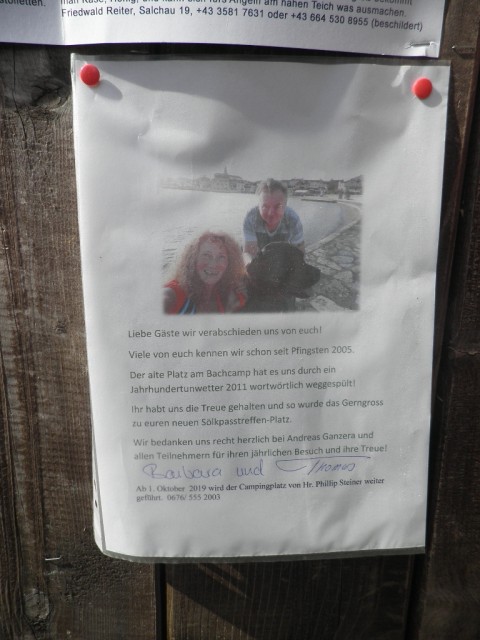 toiletten.
Friedwald Reiter, Salchau 19, +43 3581 7631 oder +43 664 530 8955 (beschildert)
Liebe Gäste wir verabschieden uns von euch!
Viele von euch kennen wir schon seit Pfingsten 2005.
Der alte Platz am Bachcamp hat es uns durch ein
Jahrhundertunwetter 2011 wortwörtlich weggespült!
Ihr habt uns die Treue gehalten und so wurde das Gerngross
zu euren neuen Sölkpasstreffen-Platz.
Wir bedanken uns recht herzlich bei Andreas Ganzera und
allen Teilnehmern für ihren jährlichen Besuch und ihre Treue!
Barbara und Thomas
Ab 1. Oktober 2019 wird der Campingplatz von Hr. Phillip Steiner weiter
geführt. 0676/ 555 2003